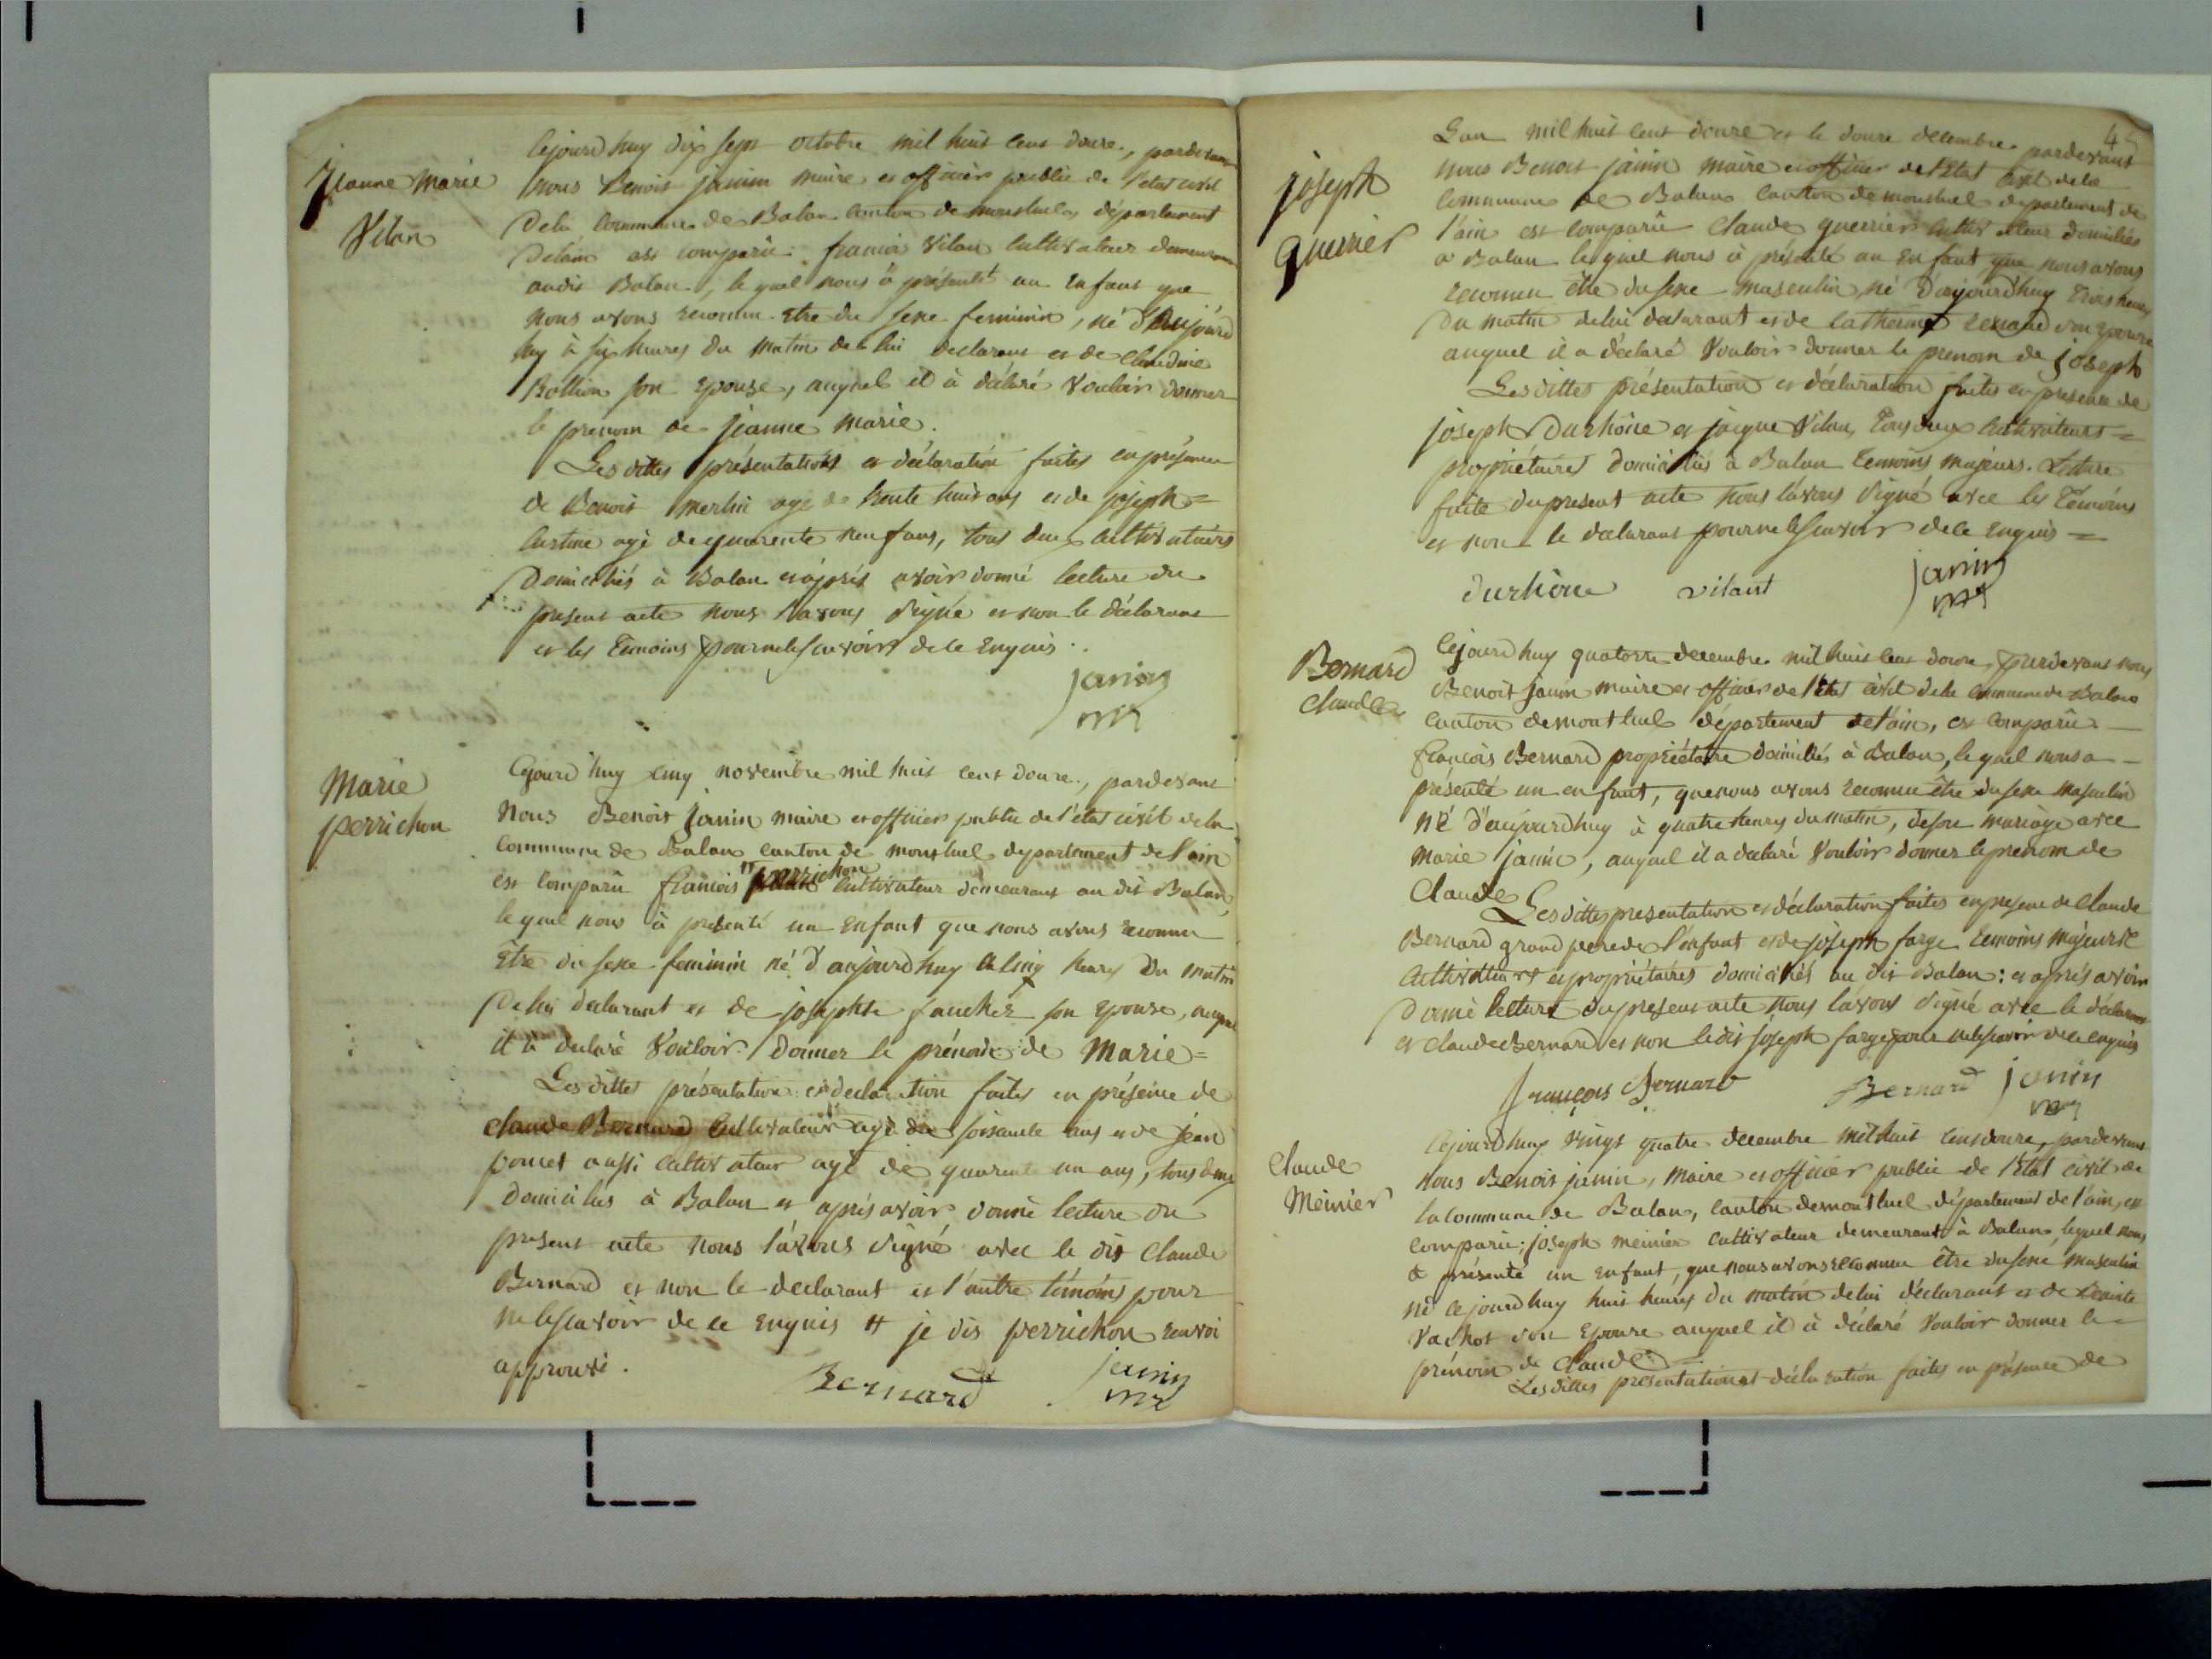 Jeanne Marie
Vilan
Cejourd'huy dix sept octobre mil huit cent douze, pardevant
nous Benoit janin maire et officier public de l'etat civil
Dela Commune de Balan canton de montluel, département
Delain est comparu françois Vilan Cultivateur demeurant
audit Balan, le quel nous à présenté un enfant que
nous avons reconnu Etre du sexe feminin, né d'Aujourd
huy à six heures du matin de lui declarant et de Claudine
Rollion son Epouse, auquel il à déclaré Vouloir donner
le prenom de jeanne marie.
Les dittes présentations et déclaration faites en présence
de Benoit Merlin agé de trente huit ans et de joseph =
agé de quarente neuf ans, tous deux cultivateurs
Domiciliés à Balan et après avoir donné lecture du
présent acte nous l'avons signé et non le déclarant
et les Temoins pour ne le scavoir de ce enquis.
janin
mre
Marie
perrichon
Cejourd'huy cinq novembre mil huit cent douze, pardevant
Nous Benoit janin maire et officier public de l'état civil dela
Commune de Balan canton de montluel département de l'ain
est comparu françois # perrichon Cultivateur demeurant au dit Balan,
le quel nous à présenté un Enfant que nous avons reconnu
Etre du sexe feminin né d'aujourdhuy à cinq heures Du matin
De lui declarant et de josephte fauchez son Epouse, auquel
il à declaré Vouloir donner le prénom de Marie =
Les dittes présentation et declaration faites en présence de
Claude Bernard Cultivateur agé de soixante ans et de jean
poncet aussi cultivateur agé de quarente un ans, tous deux
Domiciliés à Balan et après avoir donné lecture du
présent acte nous l'avons signé avec le dit Claude
Bernard et non le declarant et l'autre témoins pour
ne le scavoir de ce enquis # je dis perrichon renvoi
approuvé.
Bernard janin
mre
45
joseph
Guerrier
L'an mil huit cent douze et le douze decembre pardevant
nous Benoit janin maire et officier de l'Etat civil dela
Commune de Balan canton de montluel département de
l'ain est comparû Claude guerrier cultivateur domicilié
à Balan lequel nous à présenté un Enfant que nous avons
reconnu être du sexe masculin, né d'aujourdhuy trois heures
Du matin de lui declarant et de Catherine renard son Epouse
auquel il a déclaré Vouloir donner le prenom de joseph
Les dittes présentation et déclaration faites en presence de
joseph Durhône et jacque Vilan, Tous deux Cultivateurs =
propriétaires domiciliés à Balan Temoins majeurs. Lecture
faite du present acte nous l'avons signé avec les Témoins
et non le declarant pour ne le scavoir de ce enquis =
durhône vilant janin
mre
Bernard
Claude
Cejourd'huy quatorze decembre mil huit cent douze, pardevant nous
Benoit janin maire et officier de l'Etat civil dela commune de Balan
canton de montluel département de l'ain, est comparu
françois Bernard propriétaire domiciliés à Balan, le quel nous a
présenté un enfant, que nous avons reconnu être du sexe masculin
né d'aujourdhuy à quatre heures du matin, de son mariage avec
Marie janin, auquel il a declaré Vouloir donner le prenom de
Claude
Les dittes presentation et déclaration faites en presence de Claude
Bernard grand pere de l'enfant et de joseph farge temoins majeurs
Cultivateurs et propriétaires domiciliés au dit Balan: et après avoir
Donné lecture du present acte nous l'avons signé avec le déclarant
et Claude Bernard et non le dit joseph farge pour ne le scavoir de ce enquis
françois Bernard Bernard janin
mre
Claude
Meinier
Cejourd'huy vingt quatre decembre mil huit cent douze, pardevant
nous Benoit janin, Maire et officier public de l'Etat civil de
la Commune de Balan, canton de montluel département de l'ain, est
comparu; joseph meinier cultivateur demeurant à Balan, lequel nous
à présenté un enfant, que nous avons reconnu être du sexe masculin
né cejourdhuy huit heures du matin de lui déclarant et de
Vachot son Epouse auquel il à déclaré Vouloir donner le
prénom de Claude =
Les dittes présentation et déclaration faites en présence de